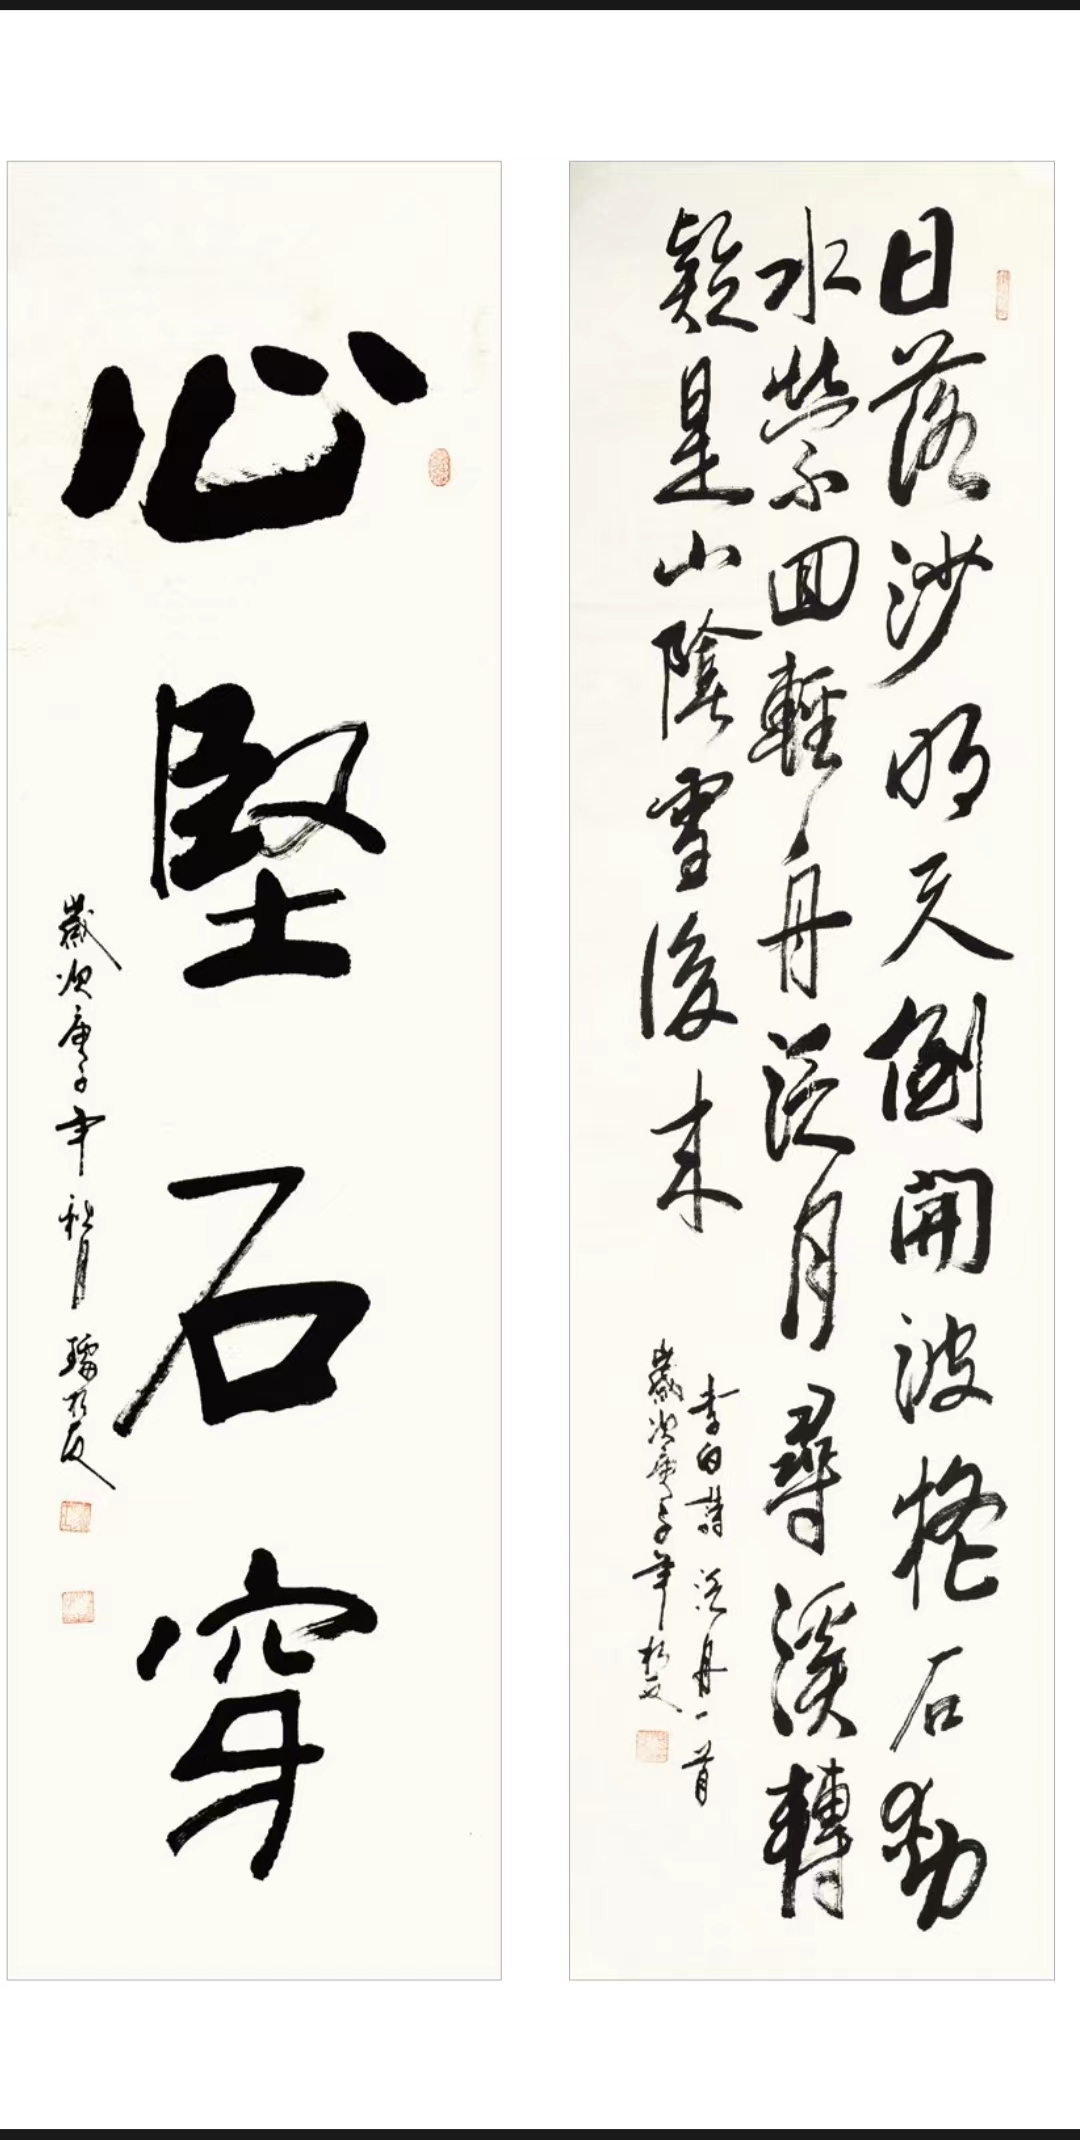 日落沙明天倒開波搖石動
水縈回輕舟泛月尋溪轉
疑是山陰雪後来
李白詩泛舟一首
歲次庚子年
心堅石穿
歲次庚子年秋月